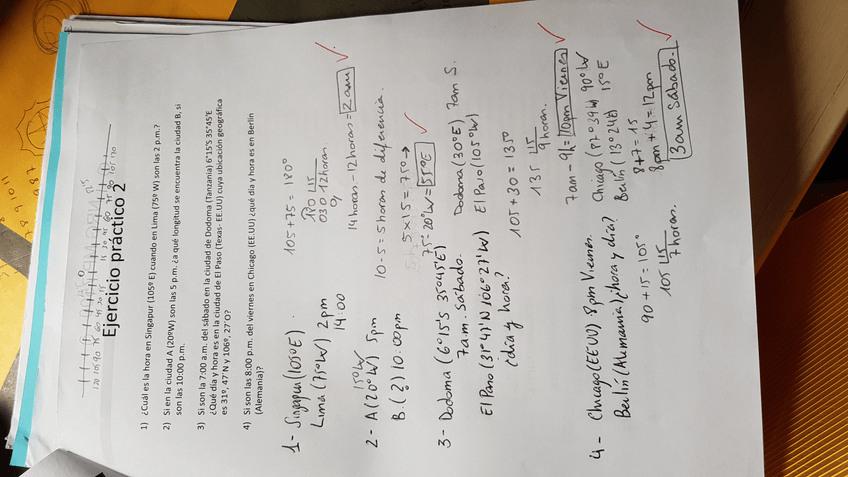 Ejercicio práctico 2
1) ¿Cuál es la hora en Singapur (105º E) cuando en Lima (75º W) son las 2 p.m.?
2) Si en la ciudad A (20ºW) son las 5 p.m. ¿a qué longitud se encuentra la ciudad B, si
son las 10:00 p.m.
3) Si son la 7:00 a.m. del sábado en la ciudad de Dodoma (Tanzania) 6°15'S 35°45'E
¿Qué día y hora es en la ciudad de El Paso (Texas- EE.UU) cuya ubicación geográfica
es 31º, 47'N y 106º, 27'O?
4) Si son las 8:00 p.m. del viernes en Chicago (EE.UU) ¿qué día y hora es en Berlín
(Alemania)?
1- Singapur (105ºE).
Lima (75ºW) 2pm
14:00
105+75 = 180º
180 15
030 12 horas
0
14 horas - 12 horas = 2am
15ºW
2- A (20ºW) 5pm
B. (?) 10:00pm
10-5 = 5 horas de diferencia.
5x15 = 75º →
75º-20ºW = 55ºE
3- Dodoma (6º15'S 35º45'E)
7a.m. Sábado.
El Paso (31º41'N 106º27'W)
¿día y hora?
Dodoma (30ºE) 7am S.
El Paso (105ºW)
105+30 = 135º
135 15
9 horas.
7am - 9h = 10pm Viernes
4- Chicago (EE UU) 8pm Viernes.
Berlín (Alemania) ¿hora y día?
Chicago (87º39W) 90ºW
Berlín (13º24E) 15ºE
90+15 = 105º
105 15
7 horas.
8+7 = 15
8pm + 4 = 12pm
3am Sábado.